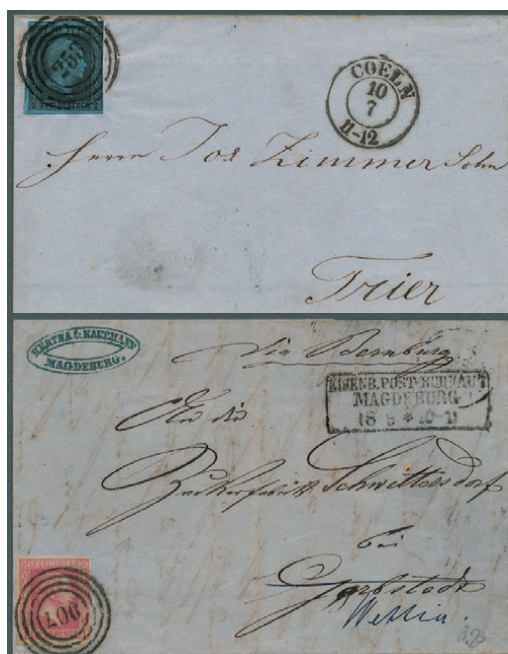 257
COELN
10
7
11-12
Herrn Jos Zimmer Sohn
Trier
MAGDEBURG.
via Bernburg
EISENB. POST-BUREAU
MAGDEBURG
18 9 * 10-11
An die
Zuckerfabrik Schwittersdorf
bei
Gerbstedt
Wettin.